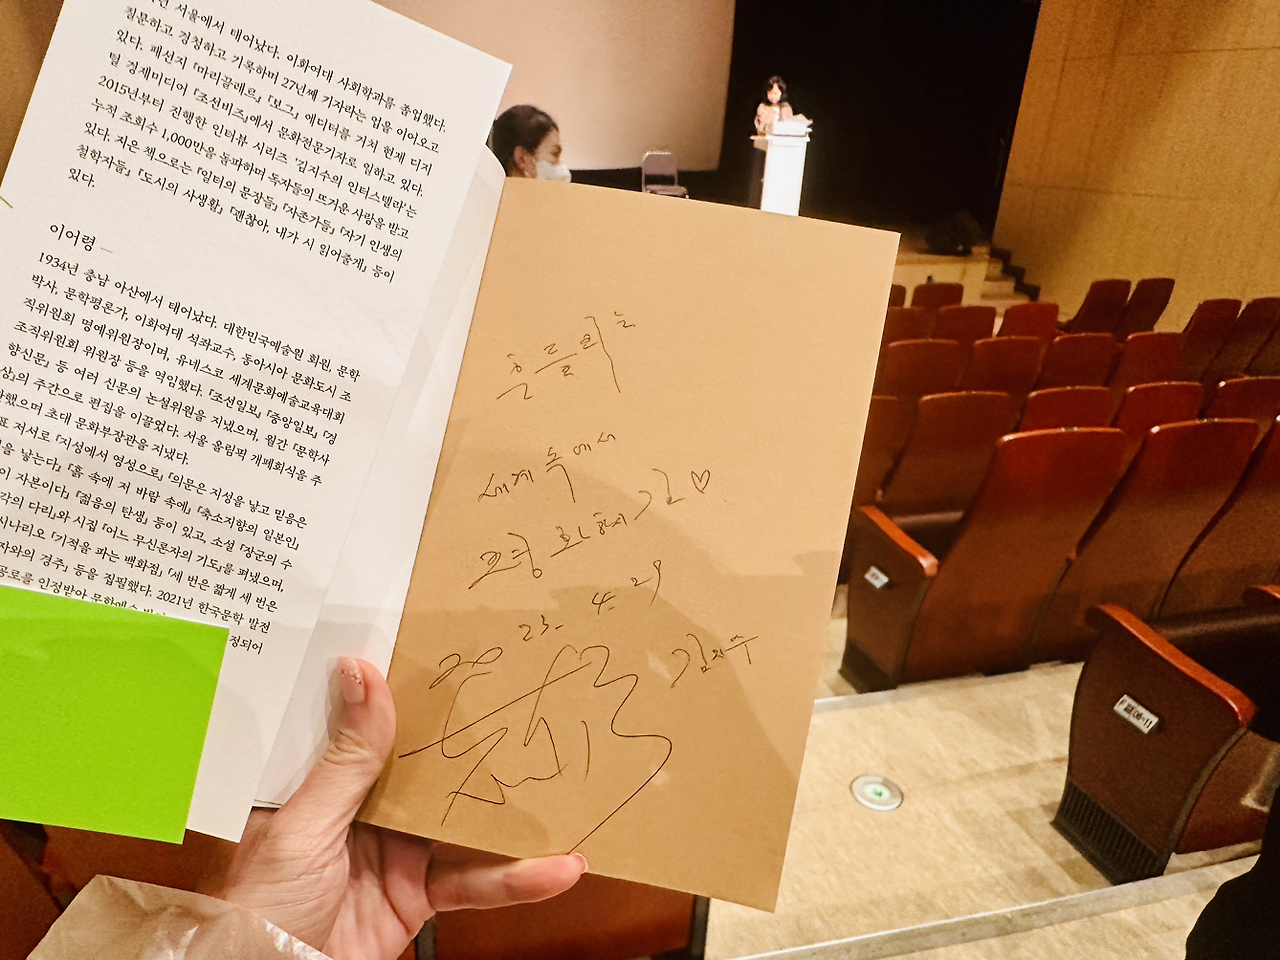 서울에서 태어났다. 이화여대 사회학과를 졸업했다.
질문하고 경청하고 기록하며 27년째 기자라는 업을 이어오고
있다. 패션지 『마리끌레르』 『보그』 에디터를 거쳐 현재 디지
털 경제미디어 『조선비즈』에서 문화전문기자로 일하고 있다.
2015년부터 진행한 인터뷰 시리즈 '김지수의 인터스텔라'는
누적 조회수 1,000만을 돌파하며 독자들의 뜨거운 사랑을 받고
있다. 지은 책으로는 『일터의 문장들』 『자존가들』 『자기 인생의
철학자들』 『도시의 사생활』 『괜찮아, 내가 시 읽어줄게』 등이
있다.
이어령
1934년 충남 아산에서 태어났다. 대한민국예술원 회원, 문학
박사, 문학평론가, 이화여대 석좌교수, 동아시아 문화도시 조
직위원회 명예위원장이며, 유네스코 세계문화예술교육대회
조직위원회 위원장 등을 역임했다. 『조선일보』 『중앙일보』 『경
향신문』 등 여러 신문의 논설위원을 지냈으며, 월간 『문학사
상』의 주간으로 편집을 이끌었다. 서울 올림픽 개폐회식을 주
했으며 초대 문화부장관을 지냈다.
저서로 『지성에서 영성으로』 『의문은 지성을 낳고 믿음은
을 낳는다』 『흙 속에 저 바람 속에』 『축소지향의 일본인』
이 자본이다』 『젊음의 탄생』 등이 있고, 소설 『장군의 수
각의 다리』와 시집 『어느 무신론자의 기도』를 펴냈으며,
시나리오 『기적을 파는 백화점』 『세 번은 짧게 세 번은
자와의 경주』 등을 집필했다. 2021년 한국문학 발전
공로를 인정받아 문화예술
정되어
세계 속에서
평화하시길 ♡
2023. 4. 29
김지수